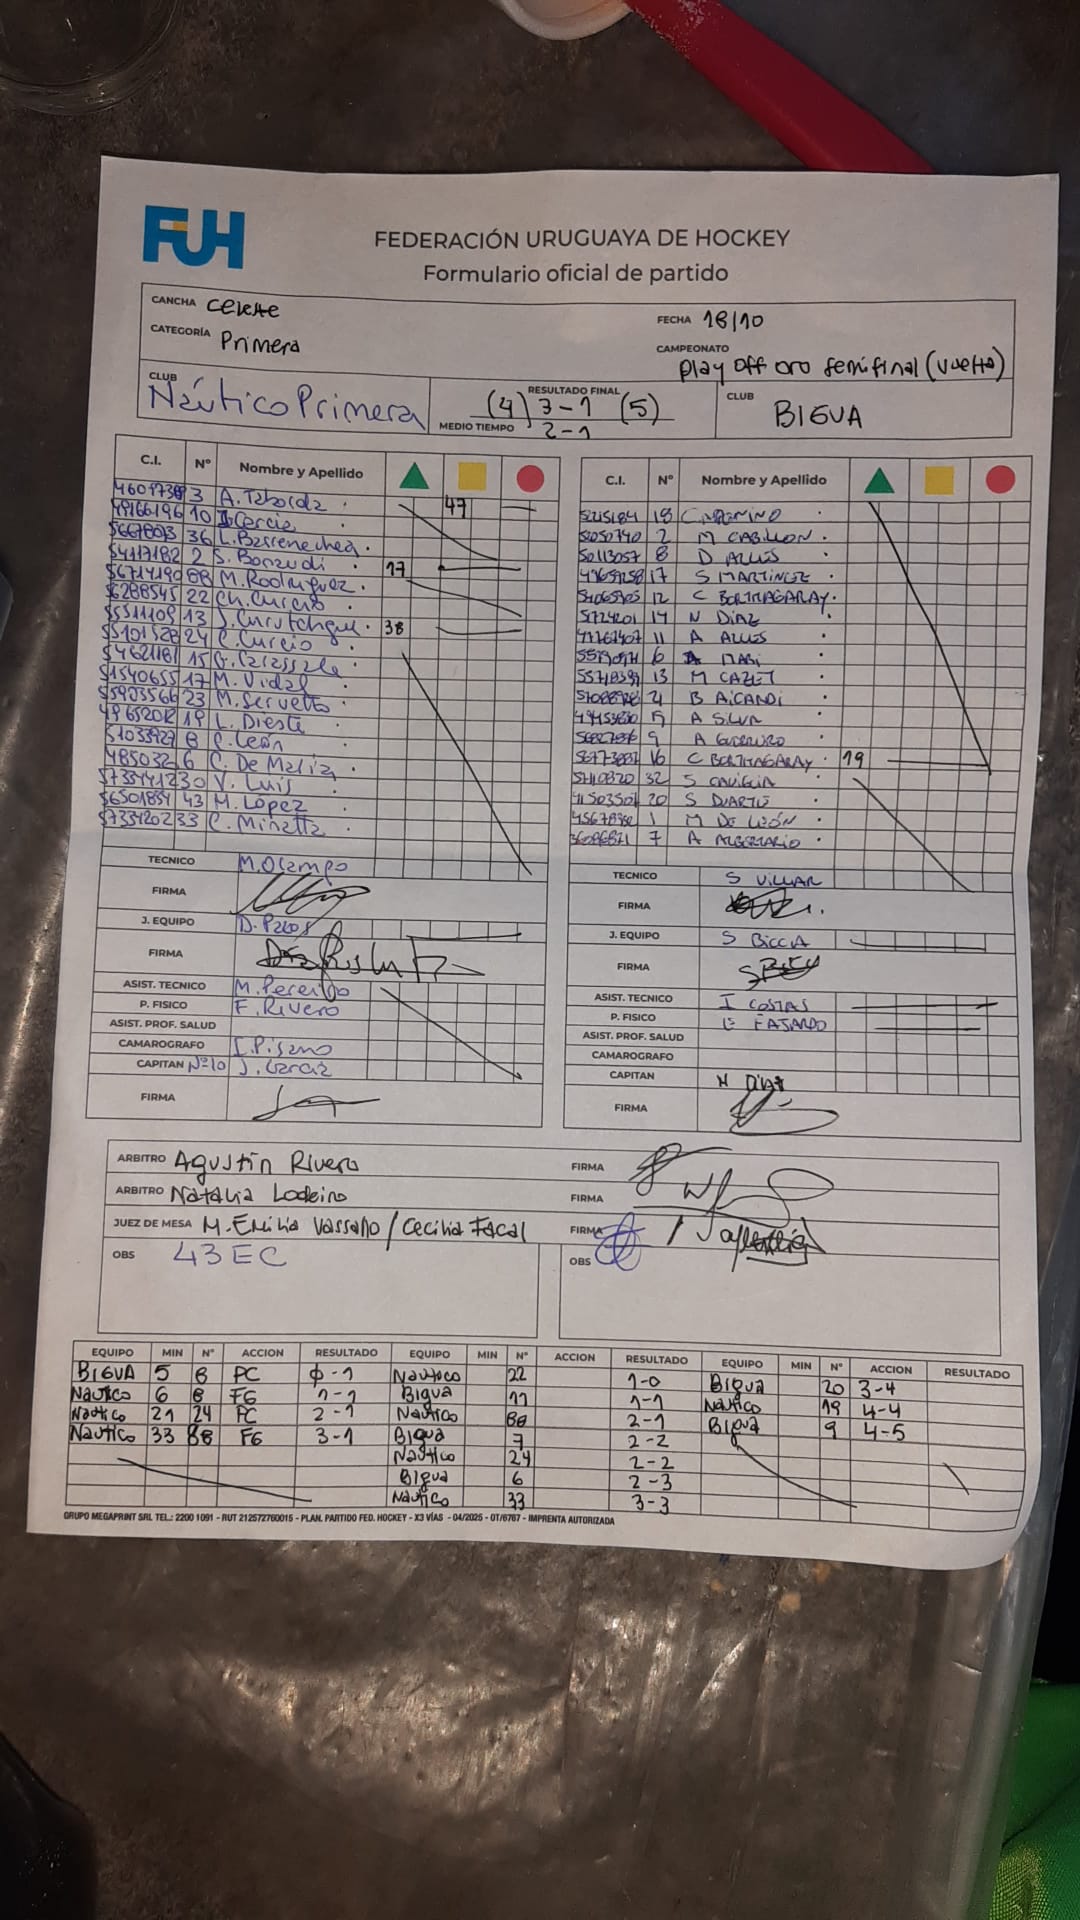 FUH
FEDERACIÓN URUGUAYA DE HOCKEY
Formulario oficial de partido
CANCHA Celeste
FECHA 18/10
CATEGORÍA Primera
CAMPEONATO Play Off oro semifinal (vuelta)
CLUB Náutico Primera
RESULTADO FINAL (4) 3-1 (5)
MEDIO TIEMPO 2-1
CLUB BIGUA
C.I. Nº Nombre y Apellido
3 A. Taborda 47
49166196 10 J. García
36 L. Barrenechea
54117182 2 S. Bonaudi 17
56714190 88 M. Rodriguez
56288545 22 Ch. Curcio
55511109 13 38
55101528 24 C. Curcio
54621181 15
51540655 17 M. Vidal
55903566 23 M. Servetto
49652012 19 L. Dieste
51033927 8 C. León
4850326 6 C. De María
30 V. Luis
56501834 43 M. López
57334202 33 C. Minetta
TECNICO M. Ocampo
FIRMA
J. EQUIPO D. Palos
FIRMA
ASIST. TECNICO M. Pereiro
P. FISICO F. Rivero
ASIST. PROF. SALUD
CAMAROGRAFO I. Pisano
CAPITAN Nº10 J. García
FIRMA
C.I. Nº Nombre y Apellido
18
2 M CABILLON
50113057 8 D ALLES
17 S MARTINEZ
12 C BORTHAGARAY
14 N DIAZ
11 A ALLES
6
13 M CAZET
B AICARDI
A SILVA
9 A GUERRERO
16 C BORTHAGARAY 19
32 S CAVIGLIA
20 S DUARTE
1 M DE LEÓN
7 A ALBERTARIO
TECNICO S VILLAR
FIRMA
J. EQUIPO S BICCA
FIRMA
ASIST. TECNICO I COSTAS
P. FISICO E FAJARDO
ASIST. PROF. SALUD
CAMAROGRAFO
CAPITAN N DIAZ
FIRMA
ARBITRO Agustín Rivero FIRMA
ARBITRO Natalia Lodeiro FIRMA
JUEZ DE MESA M. Emilia Vassallo / Cecilia Facal FIRMA
OBS 43 EC
OBS
EQUIPO MIN Nº ACCION RESULTADO EQUIPO MIN Nº ACCION RESULTADO EQUIPO MIN Nº ACCION RESULTADO
BIGUA 5 8 PC 0-1 Nautico 22 1-0 Bigua 20 3-4
Nautico 6 8 FG 1-1 Bigua 11 1-1 Nautico 19 4-4
Nautico 21 24 PC 2-1 Nautico 88 2-1 Bigua 9 4-5
Nautico 33 88 FG 3-1 Bigua 7 2-2
Nautico 24 2-2
Bigua 6 2-3
Nautico 33 3-3
GRUPO MEGAPRINT SRL TEL.: 2200 1091 - RUT 212572760015 - PLAN. PARTIDO FED. HOCKEY - X3 VÍAS - 04/2025 - OT/6767 - IMPRENTA AUTORIZADA